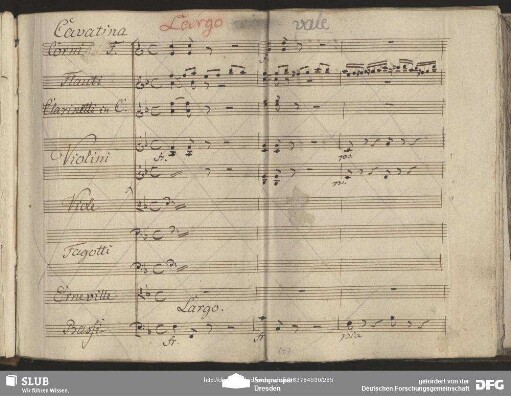 Cavatina Largo vale
Corni F.
Flauti
Clarinetti in C.
Violini
Viole
Fagotti
Erneville
Largo.
Bassi
SLUB
Wir führen Wissen.
Dresden
gefördert von der
Deutschen Forschungsgemeinschaft
DFG